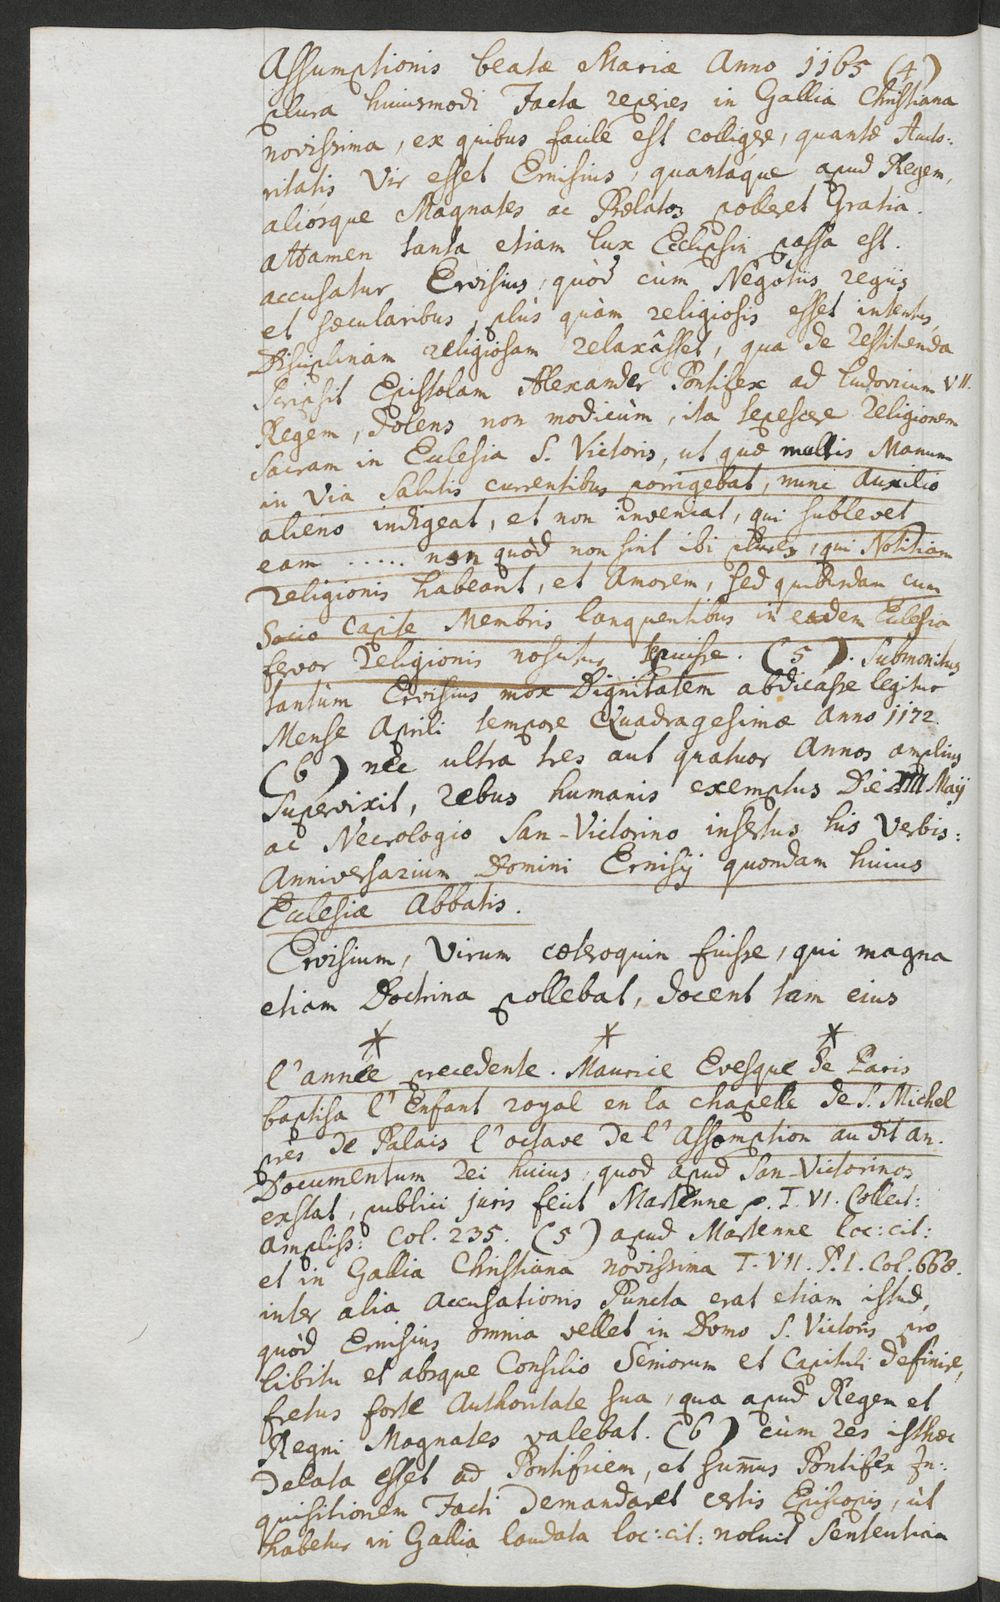 Assumptionis beatæ Mariæ Anno 1165 (4)
plura huiusmodi Facta reperies in Gallia Christiana
novissima, ex quibus facile est colligere, quantæ Auto:
ritatis Vir esset Ernisius, quantáque apud Regem,
aliósque Magnates ac Prælatos polleret Gratia.
attamen tanta etiam lux Ecclipsin passa est.
accusatur Ervisius, quòd cùm Negotiis regiis
et sæcularibus plùs quàm religiosis esset intentus,
Disciplinam religiosam relaxâsset, qua de restituenda
scripsit Epistolam Alexander Pontifex ad Ludovicum VII.
Regem, dolens non modicùm, ita tepescere religionem
sacram in Eclesia S. Victoris, ut quæ multis Manum
in Via Salutis currentibus porrigebat, nunc Auxilio
alieno indigeat, et non inveniat, qui sublevet
eam ..... non quòd non sint ibi plures, qui Notitiam
religionis habeant, et Amorem, sed quibusdam cum
Socio Capite Membris languentibus in eadem Eclesia
fervor religionis noscitur tepuisse. (5). Submonitus
tantùm Ervisius mox Dignitatem abdicasse legitur
Mense Aprili tempore Quadragesimæ Anno 1172.
(6) nec ultra tres aut quatuor Annos amplius
supervixit, rebus humanis exemptus Die XIII Maij
ac Necrologio San-Victorino insertus his Verbis:
Anniversarium Domini Ernisij quondam huius
Eclesiæ Abbatis.
Ervisium, Virum cæteroquin fuisse, qui magna
etiam Doctrina pollebat, docent tam eius
* * *
l'année precedente. Maurice Evesque de Paris
baptisa l'Enfant royal en la chapelle de S. Michel
près de Palais l'octave de l'Assomption au dit an.
Documentum rei huius, quod apud San-Victorinos
exstat, publici juris fecit Martenne p. T. VI. Collect:
ampliss: Col. 235. (5) apud Martenne loc: cit:
et in Gallia Christiana novissima T. VII. P. I. Col. 668.
inter alia accusationis Puncta erat etiam istud,
quòd Ernisius omnia vellet in Domo S. Victoris pro
libitu et absque Consilio Seniorum et Capituli definire,
fretus forte Authoritate sua, qua apud Regem et
Regni Magnates valebat. (6) cùm res isthæc
delata esset ad Pontificem, et summus Pontifex In:
quisitionem Facti demandaret certis Episcopis, ut
habetur in Gallia laudata loc: cit: noluit Sententiam